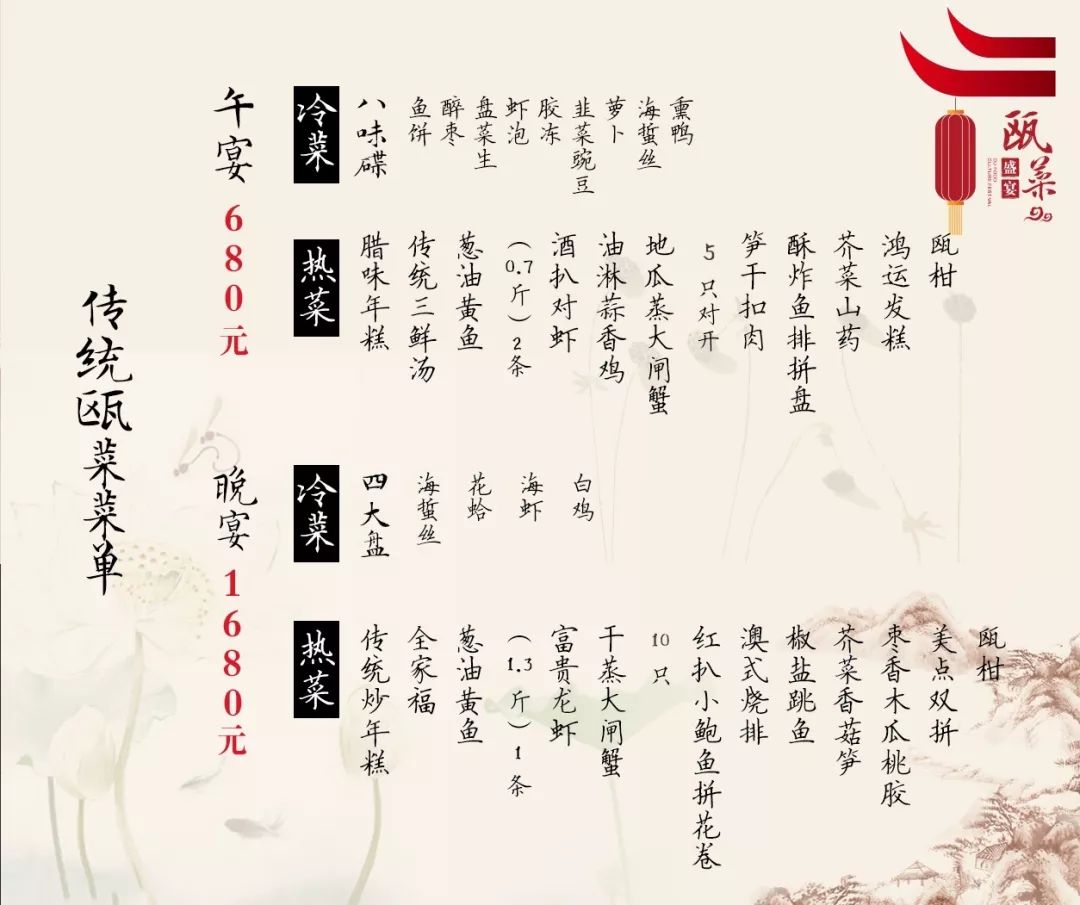 传统瓯菜菜单
午宴 680元
冷菜
八味碟
鱼饼
醉枣
盘菜生
虾泡
胶冻
韭菜豌豆
萝卜
海蜇丝
熏鸭
热菜
腊味年糕
传统三鲜汤
葱油黄鱼
(0.7斤)2条
酒扒对虾
油淋蒜香鸡
地瓜蒸大闸蟹
5只对开
笋干扣肉
酥炸鱼排拼盘
芥菜山药
鸿运发糕
瓯柑
晚宴 1680元
冷菜
四大盘
海蜇丝
花蛤
海虾
白鸡
热菜
传统炒年糕
全家福
葱油黄鱼
(1.3斤)1条
富贵龙虾
干蒸大闸蟹
10只
红扒小鲍鱼拼花卷
澳式烧排
椒盐跳鱼
芥菜香菇笋
枣香木瓜桃胶
美点双拼
瓯柑
瓯菜
盛宴